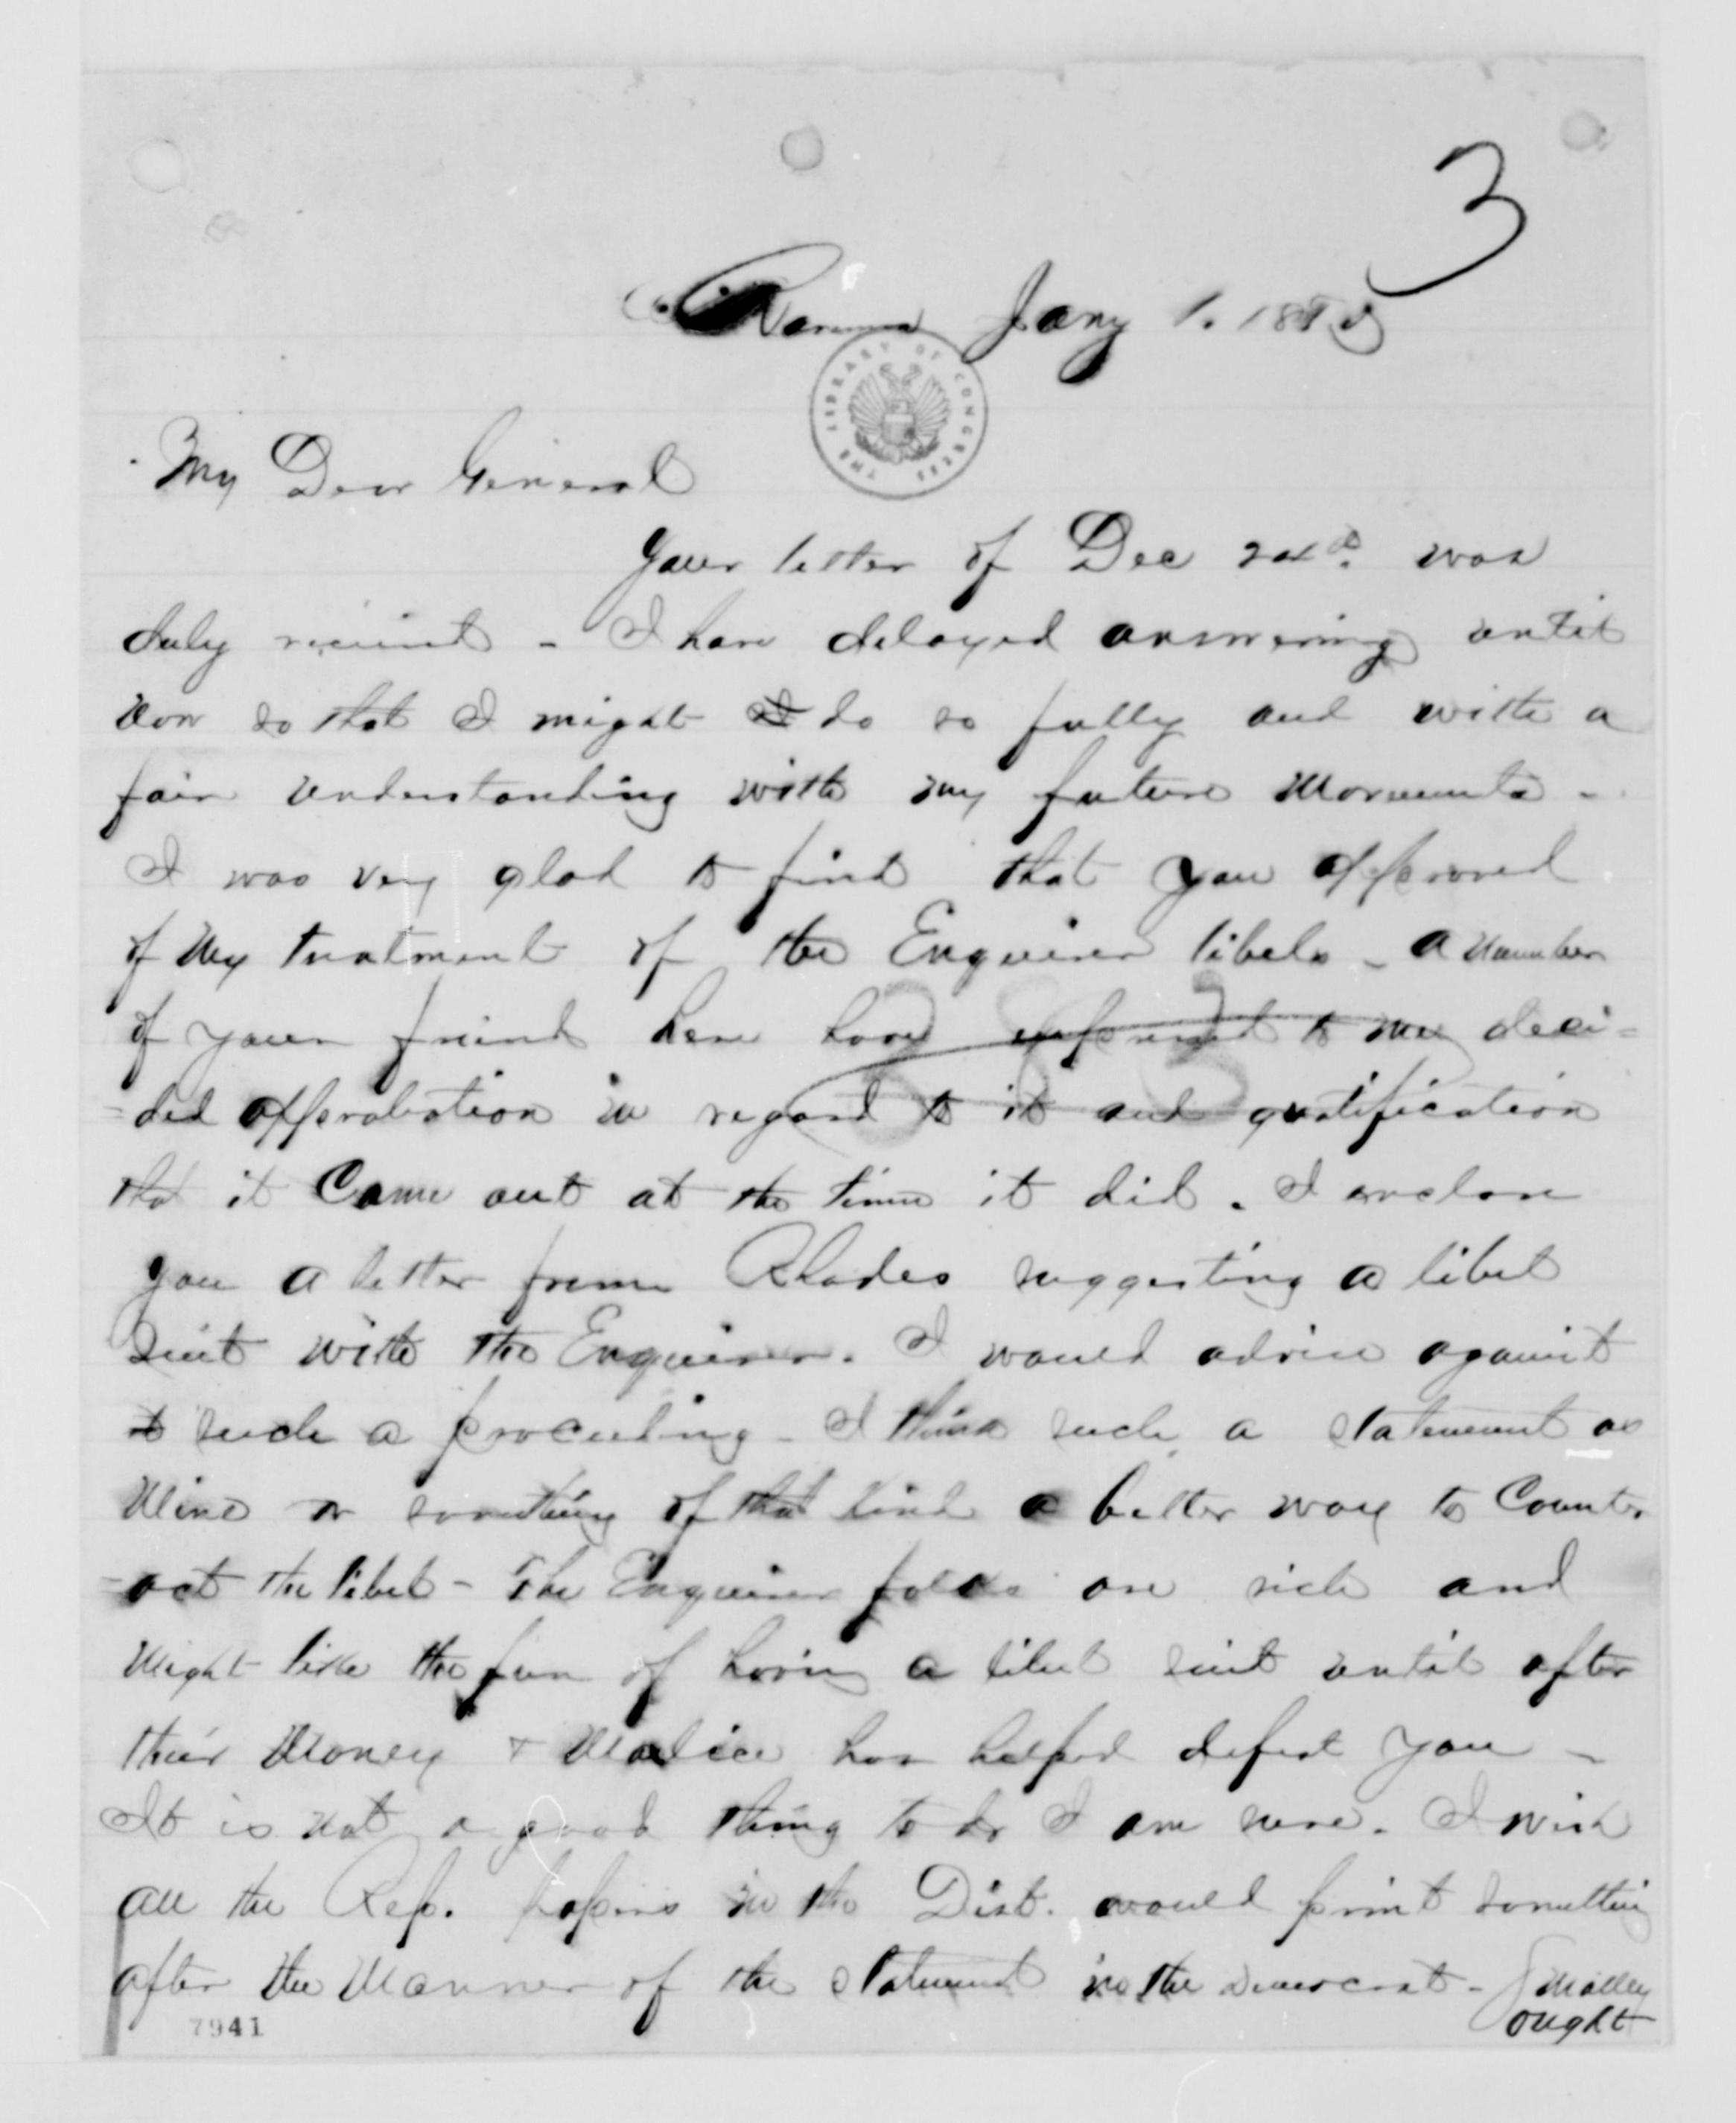 3
Ravenna Jany 1. 1878
THE LIBRARY OF CONGRESS
My Dear General
Your letter of Dec was
duly received - I have delayed answering until
now so that I might do so fully and with a
fair understanding with my future movements -
I was very glad to find that you approved
of my treatment of the Enquirer libels - a number
of your friends here have expressed to me deci-
-ded approbation in regard to it and gratification
that it came out at the time it did. I enclose
you a letter from Rhodes suggesting a libel
suit with the Enquirer. I would advise against
such a proceeding - I think such a statement as
mine or something of that kind a better way to counter-
-act the libel - The Enquirer folks are rich and
might like the fun of having a libel suit until after
their money & malice has helped defeat you -
It is not a good thing to do I am sure. I wish
all the Rep. papers in the Dist. would print something
after the manner of the statement in the Democrat - Smalley
ought
7941